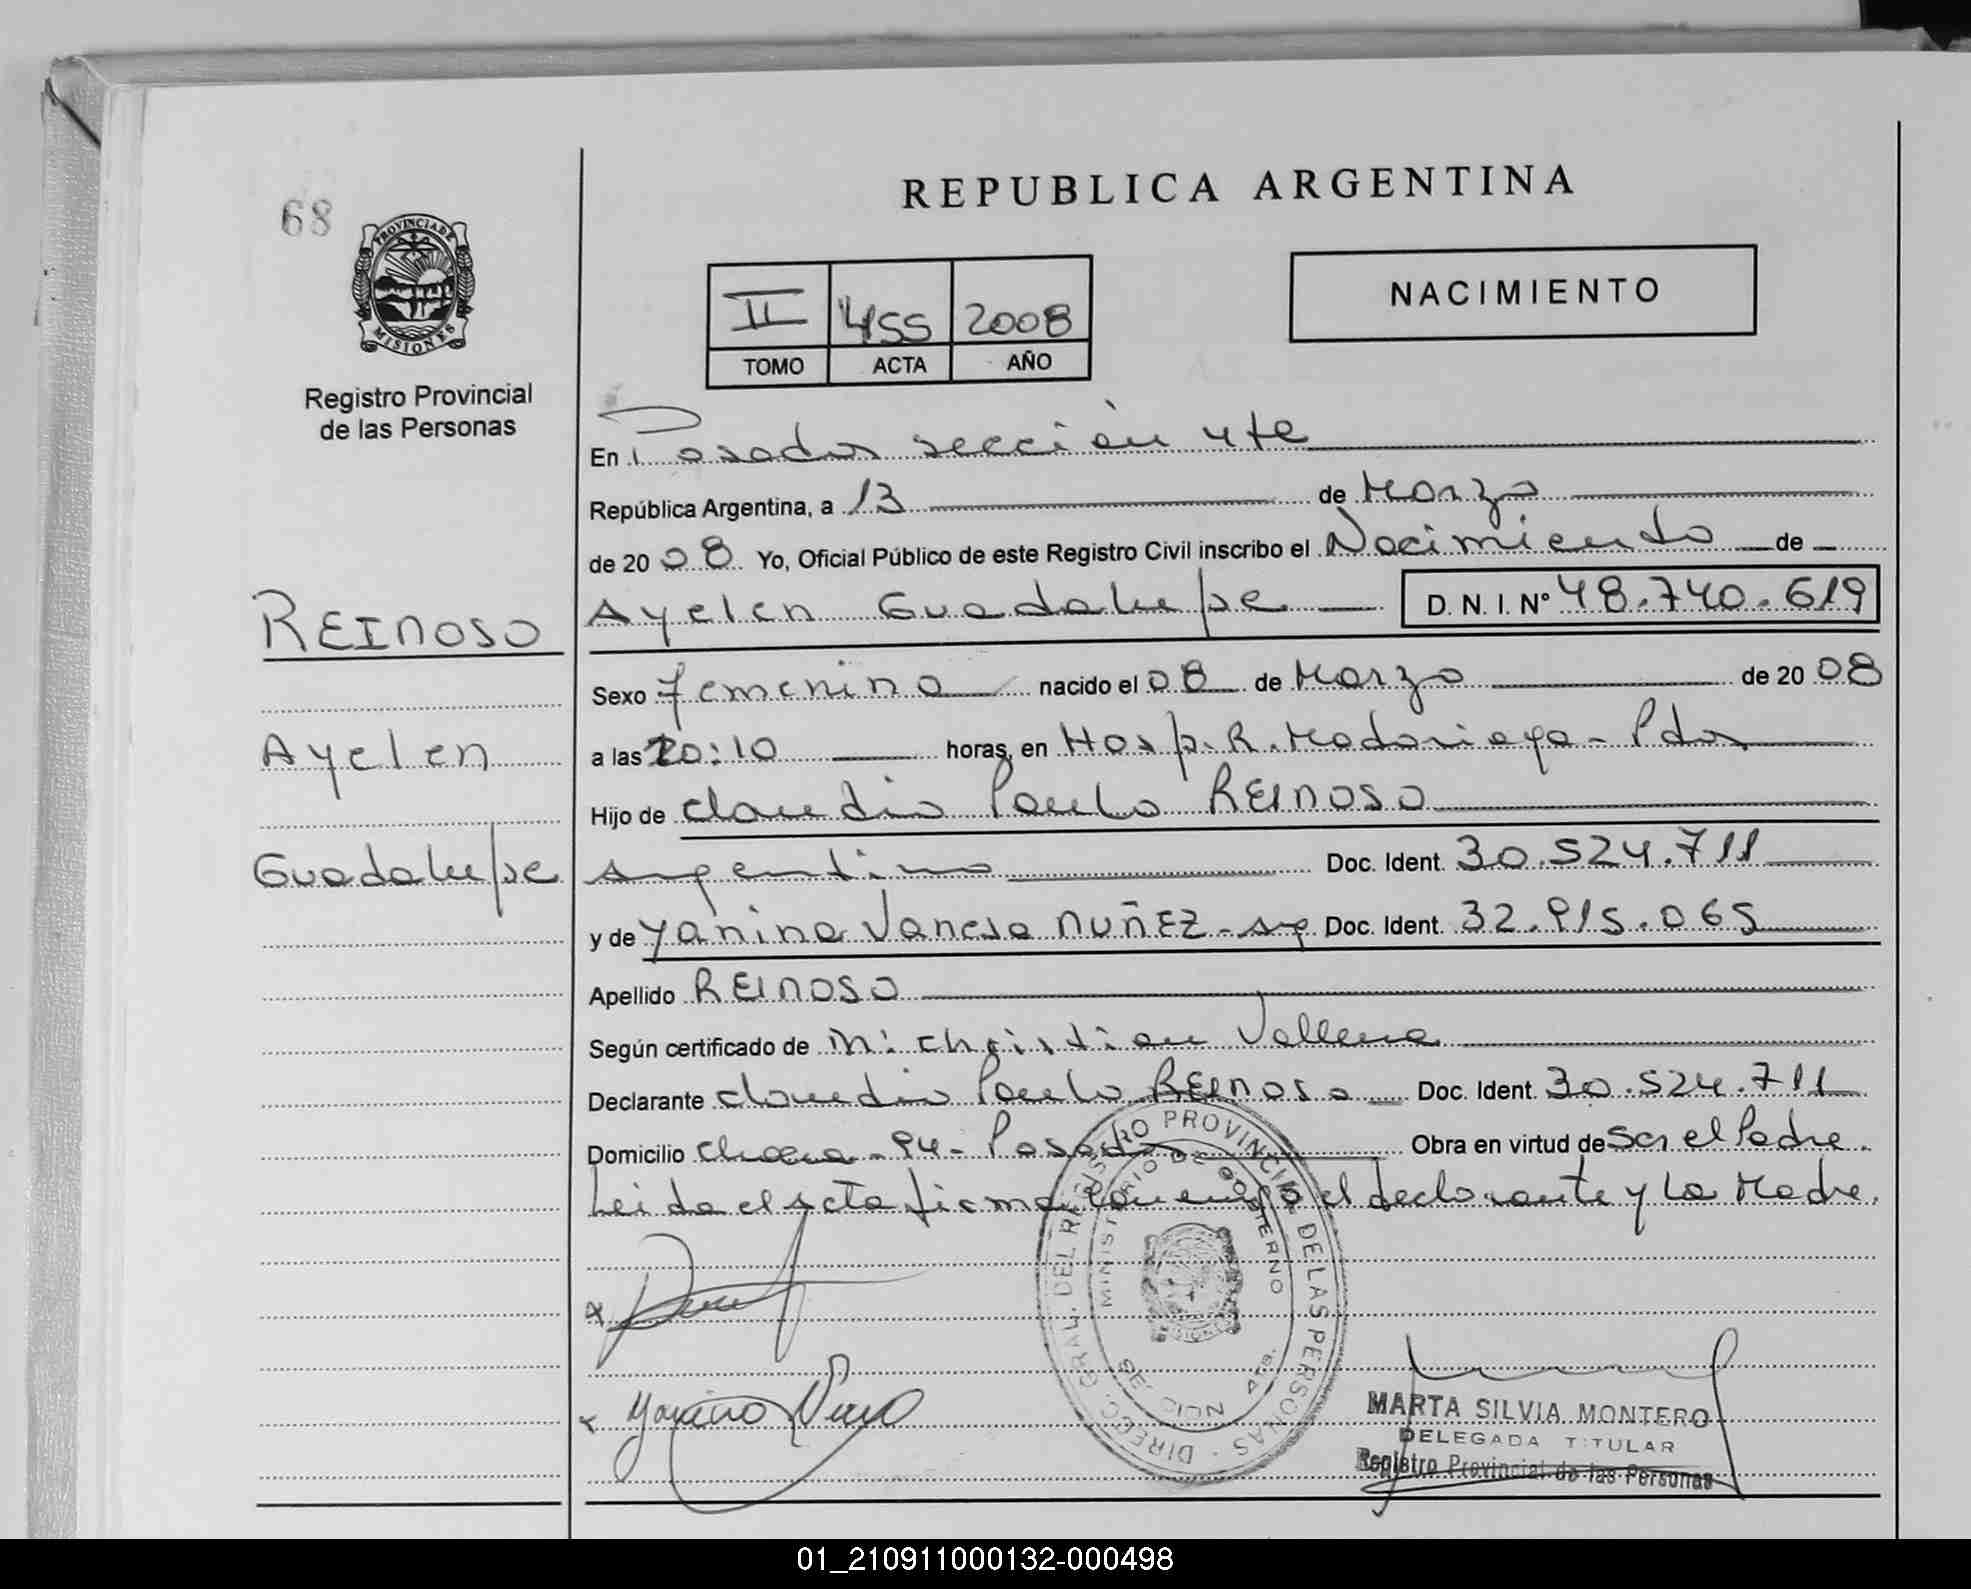 REPUBLICA ARGENTINA
68
PROVINCIA DE
MISIONES
Registro Provincial
de las Personas
NACIMIENTO
II 455 2008
TOMO ACTA AÑO
En Posadas sección 4te
República Argentina, a 13 de Marzo
de 2008 Yo, Oficial Público de este Registro Civil inscribo el Nacimiento de
REINOSO
Ayelen Guadalupe D. N. I. Nº 48.740.619
Sexo Femenino nacido el 08 de Marzo de 2008
Ayelen
a las 20:10 horas, en Hosp. R. Madariaga - Pdas
Hijo de Claudio Paulo REINOSO
Guadalupe
Argentino Doc. Ident. 30.524.711
y de Yanina Vanesa NUÑEZ - Arg Doc. Ident. 32.915.065
Apellido REINOSO
Según certificado de Christian
Declarante Claudio Paulo REINOSO Doc. Ident. 30.524.711
Domicilio Chacra - 94 - Posadas Obra en virtud de Ser el Padre.
Leida el acta firma conmigo el declarante y La Madre.
DIREC. GRAL. DEL REGISTRO PROVINCIAL DE LAS PERSONAS
MINISTERIO DE GOBIERNO
MARTA SILVIA MONTERO
DELEGADA TITULAR
Registro Provincial de las Personas
01_210911000132-000498